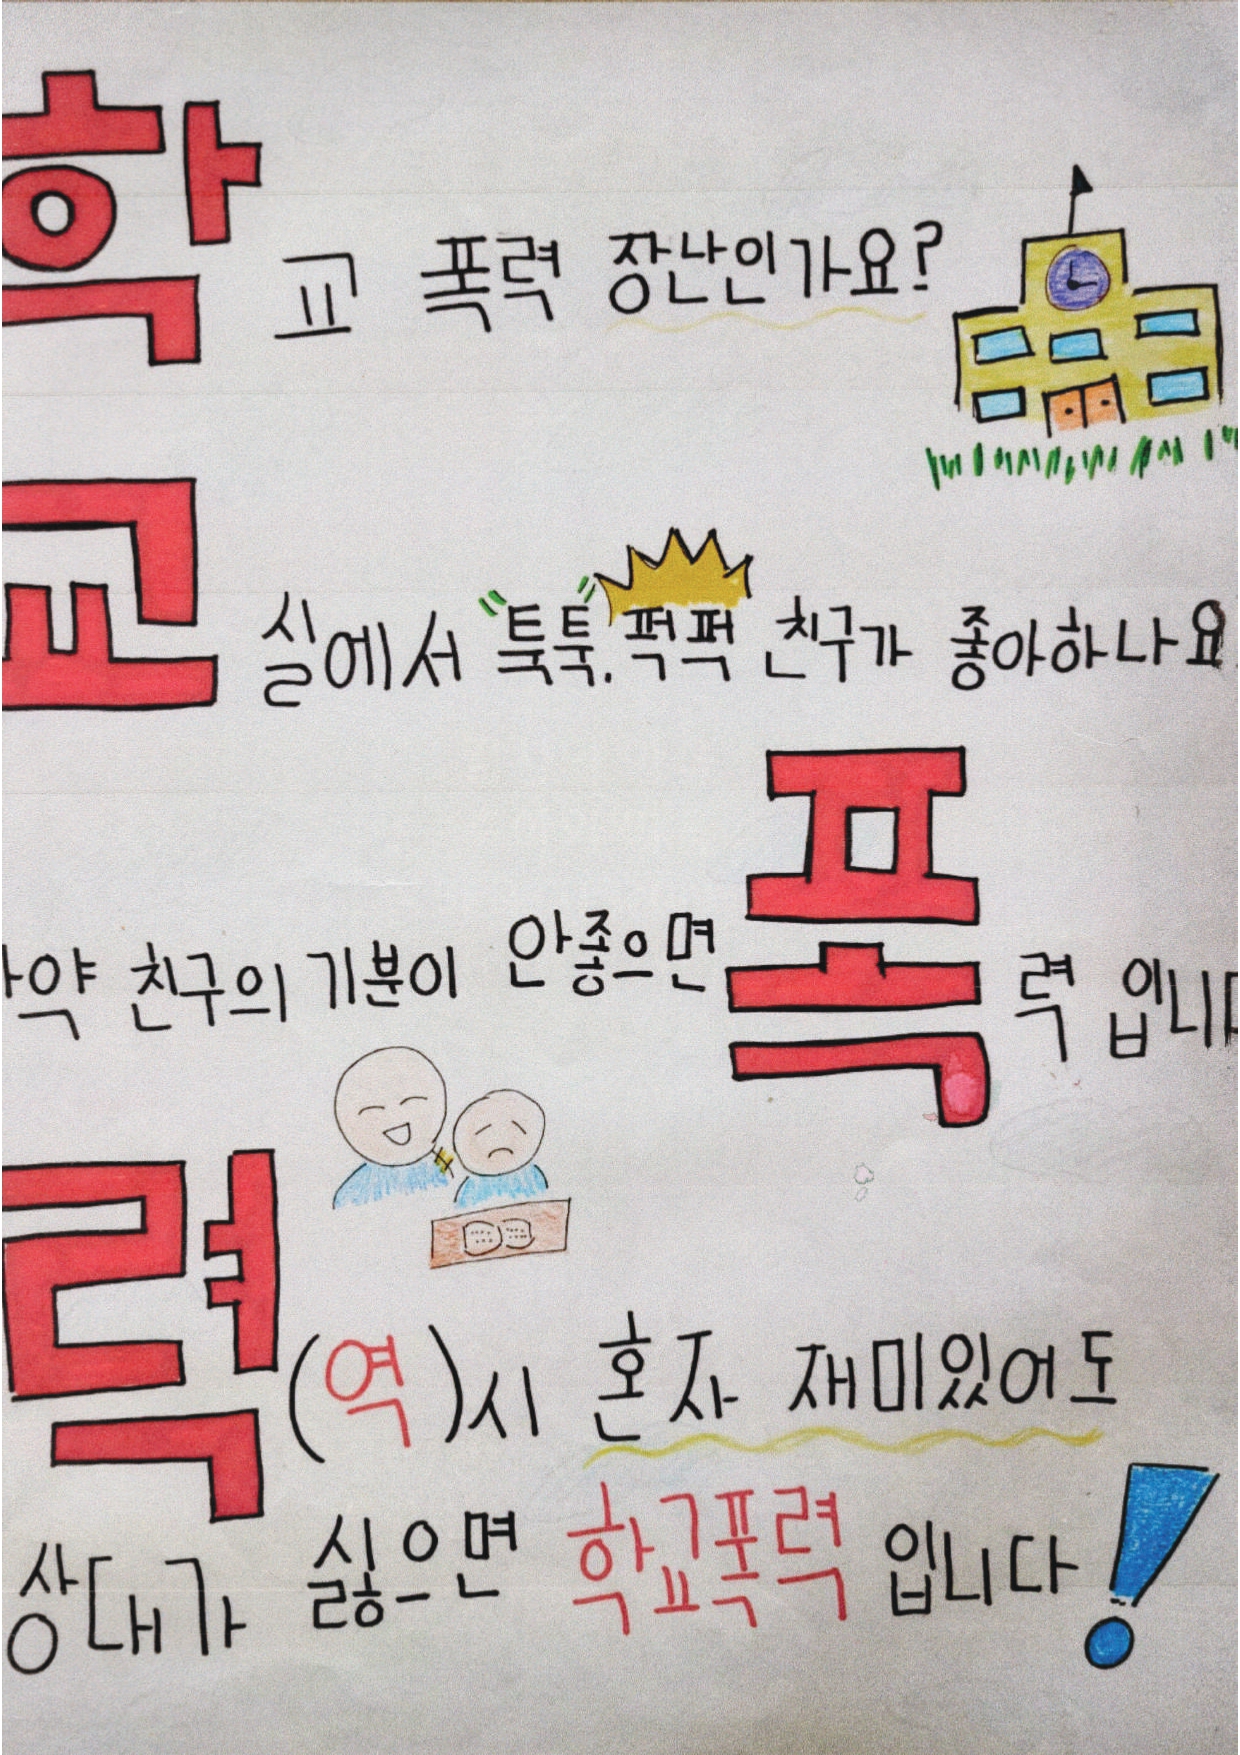 학교 폭력 장난인가요?
교실에서 "툭툭. 퍽퍽 친구가 좋아하나요
친구의 기분이 안좋으면 폭력 입니다
력(역)시 혼자 재미있어도
상대가 싫으면 학교폭력 입니다!